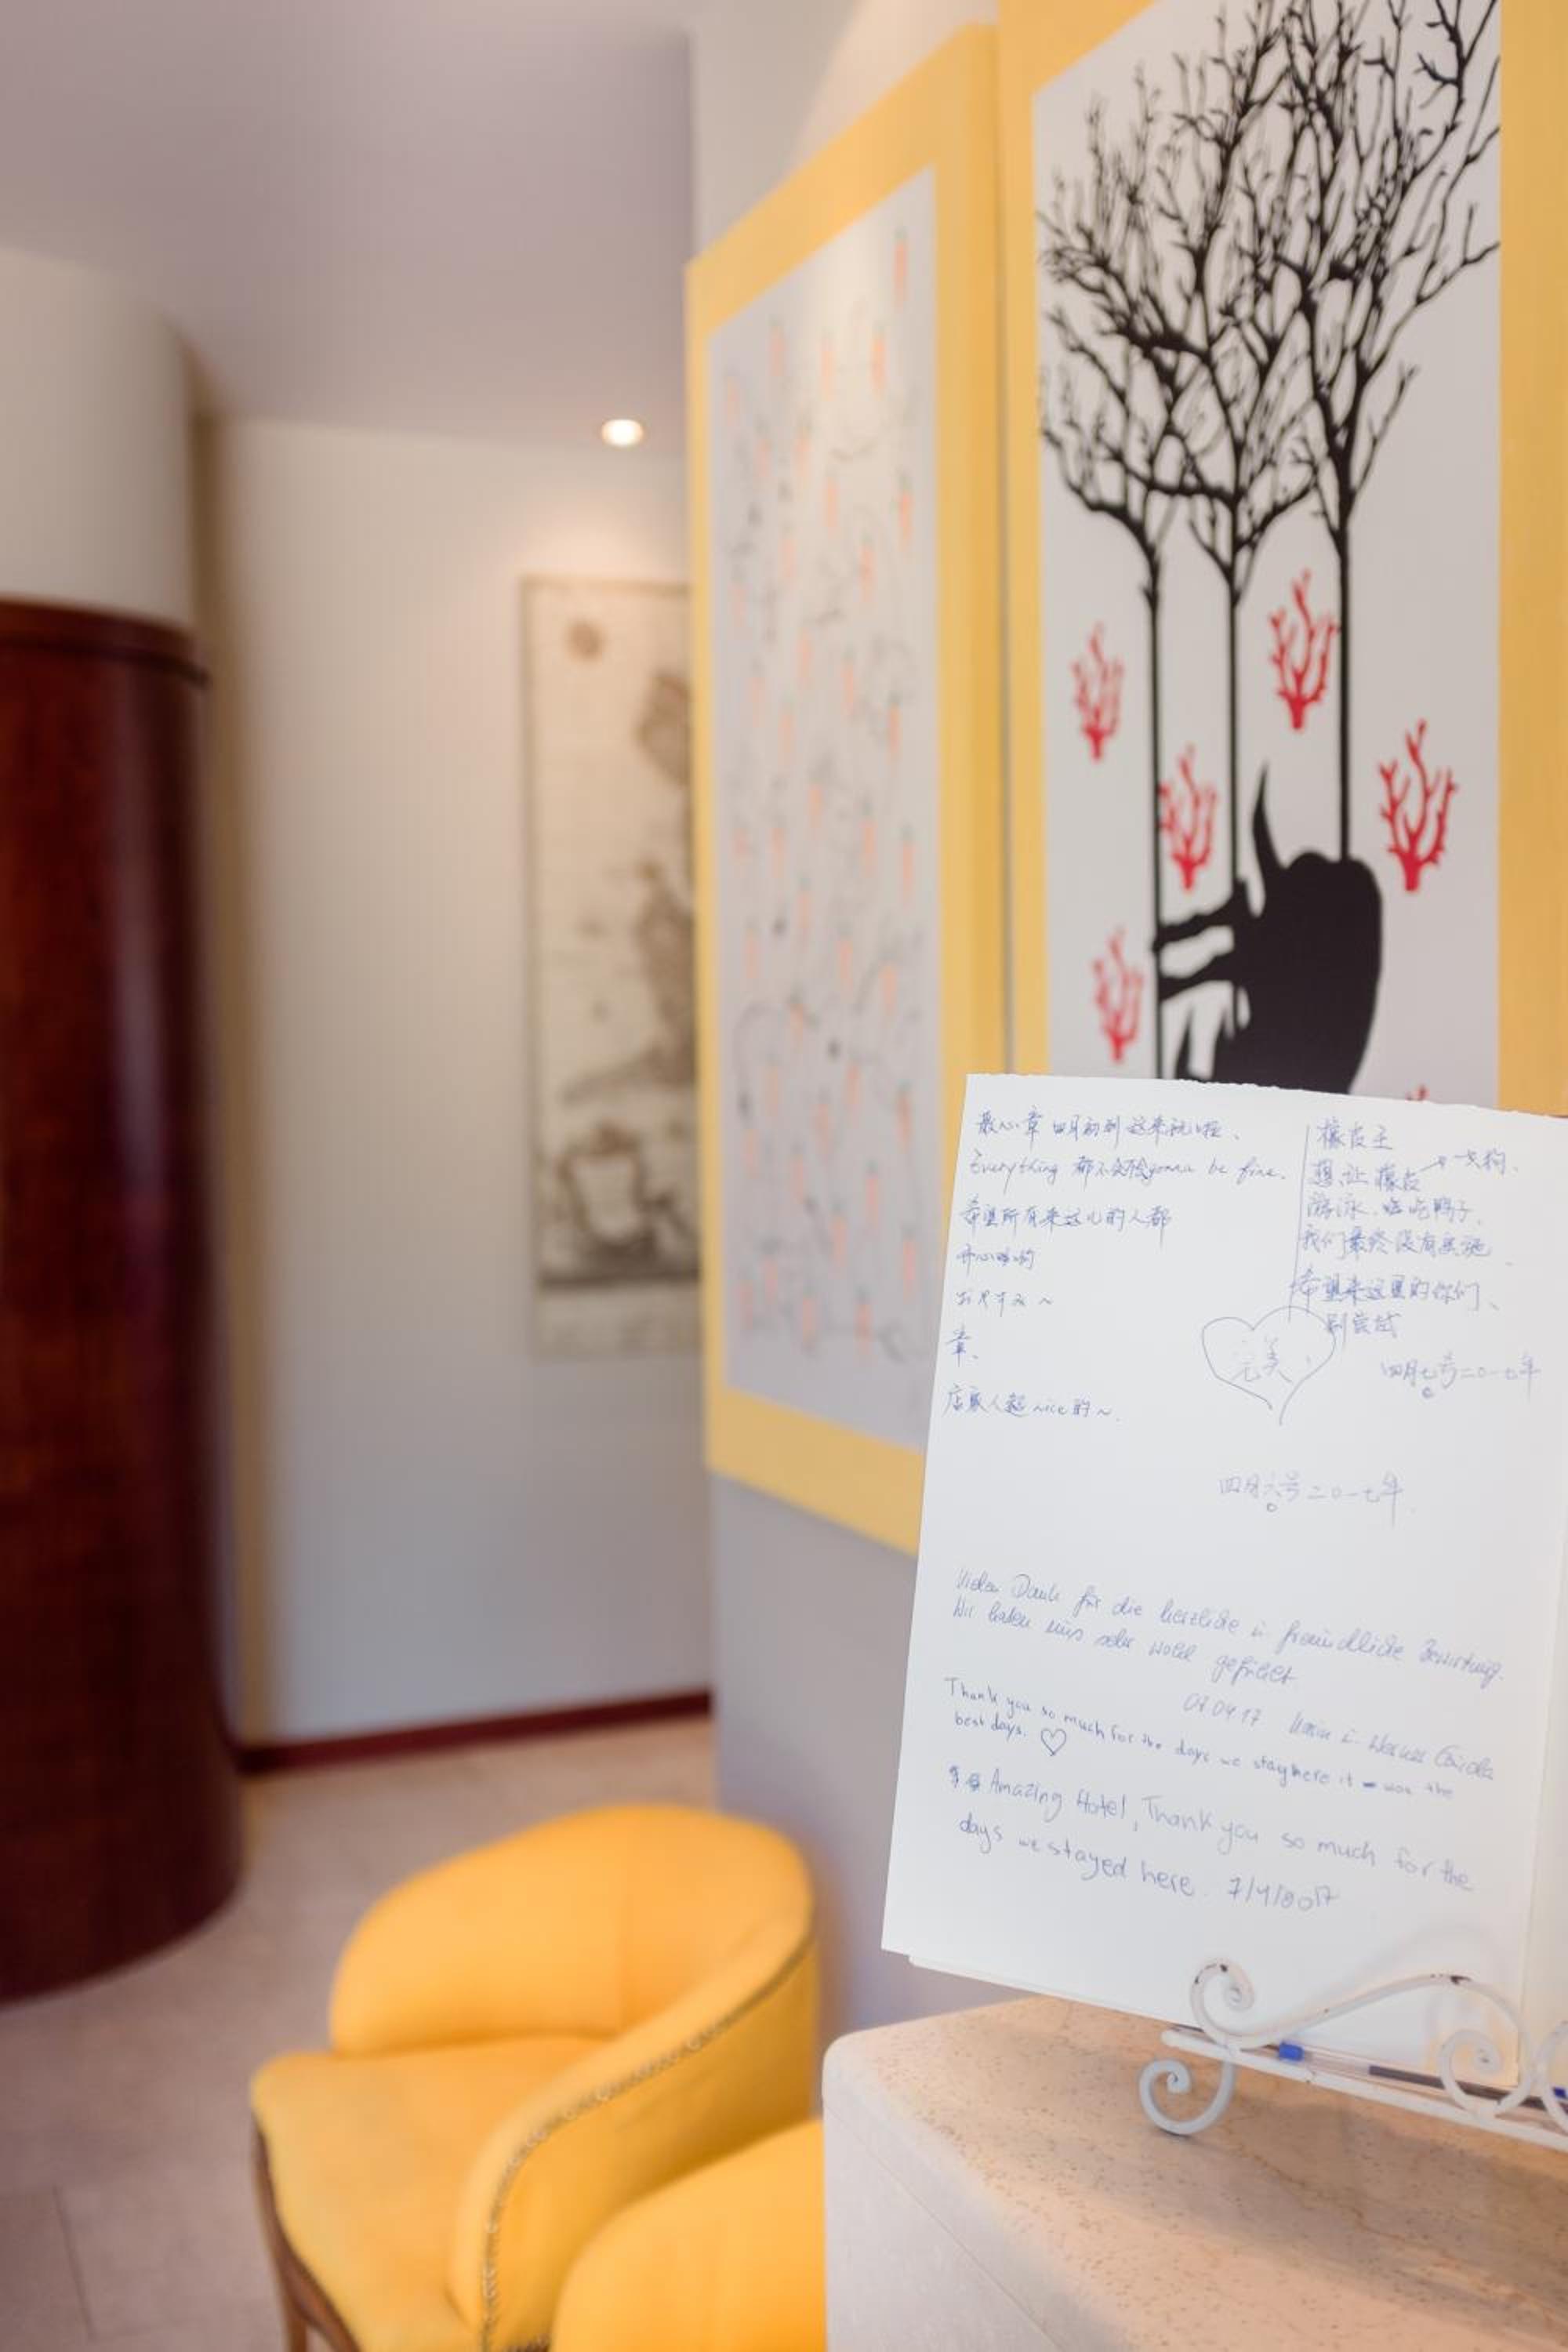 四月初到这来玩啦、
Everything 都不 gonna be fine.
希望所有来这儿的人都
开心哟
章、
店家人超 nice 的～.
主
想让 → 一只狗、
游泳、吃鸭子、
我们最终没有实施
希望来这里的你们、
别尝试
完美!
四月七号二〇一七年
四月六号二〇一七年.
Vielen Dank für die herzliche u. freundliche Bewirtung.
Wir haben uns sehr wohl gefühlt
07.04.17
Thank you so much for the days we stay here it was the
best days. ♡
Amazing Hotel, Thank you so much for the
days we stayed here. 7/4/2017